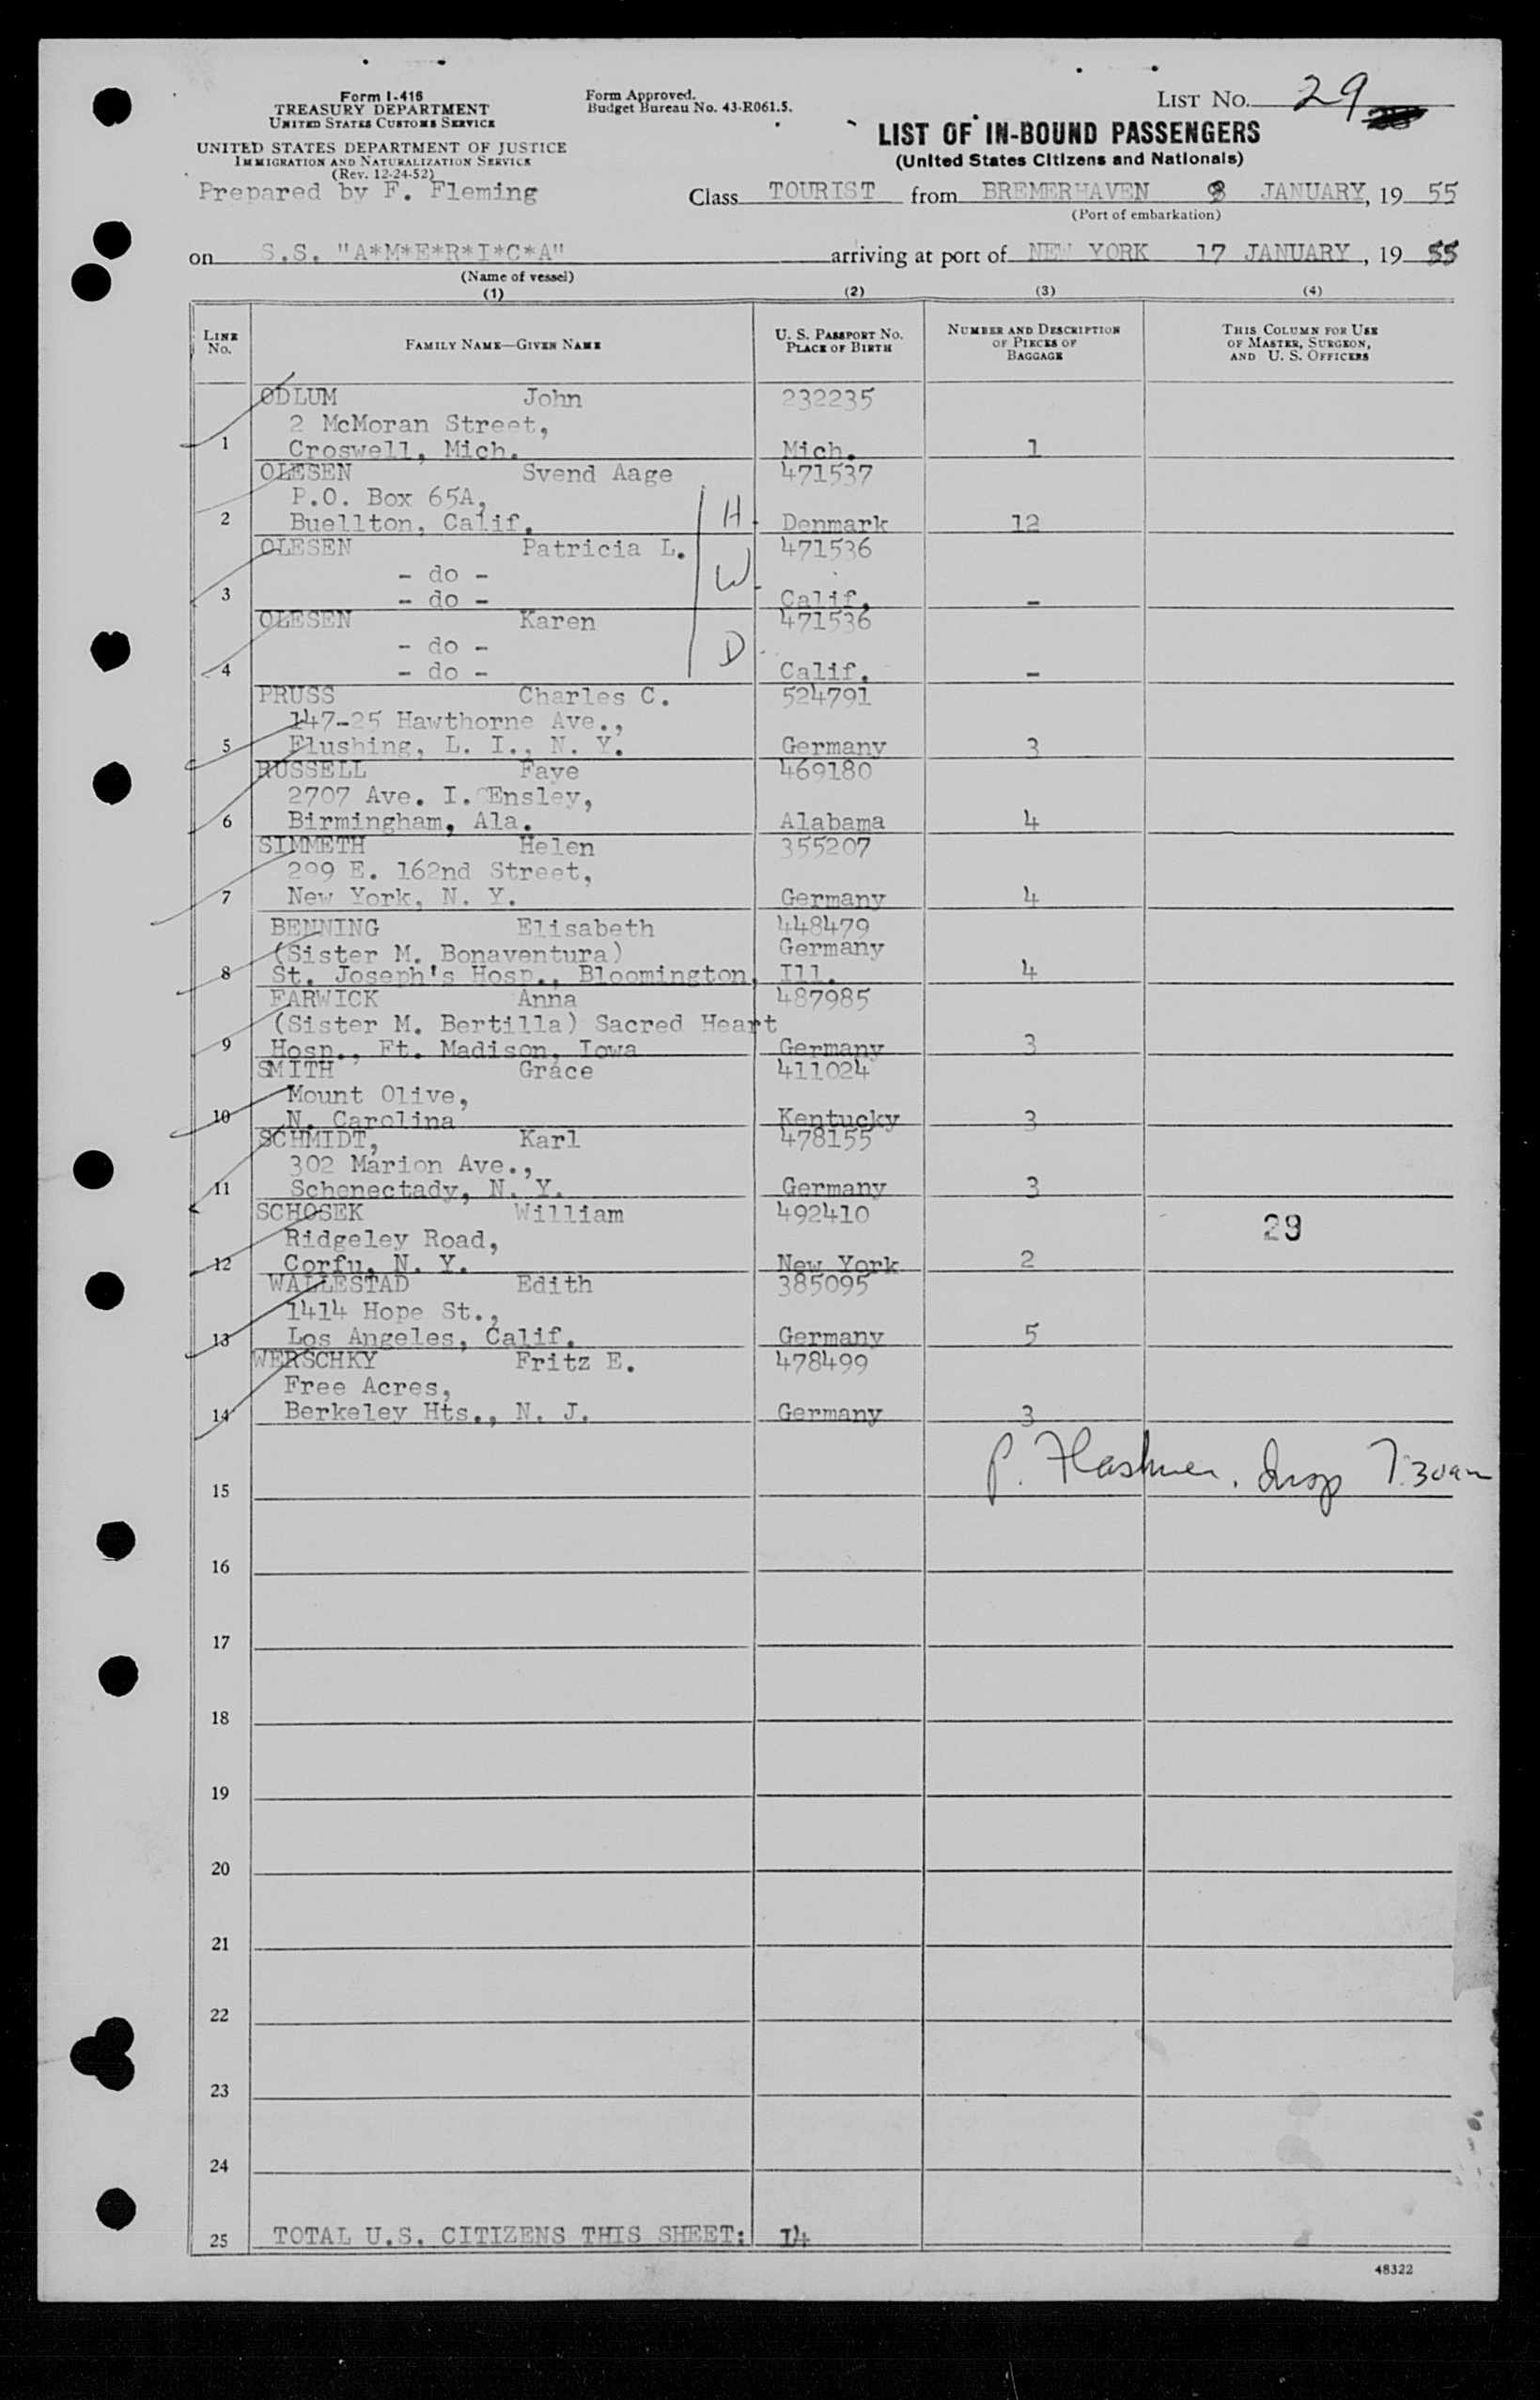 Form I-416
TREASURY DEPARTMENT
UNITED STATES CUSTOMS SERVICE
UNITED STATES DEPARTMENT OF JUSTICE
IMMIGRATION AND NATURALIZATION SERVICE
(Rev. 12-24-52)
Prepared by F. Fleming
Form Approved.
Budget Bureau No. 43-R061.5.
LIST NO. 29
LIST OF IN-BOUND PASSENGERS
(United States Citizens and Nationals)
Class TOURIST from BREMERHAVEN 8 JANUARY, 19 55
(Port of embarkation)
on S.S. "A*M*E*R*I*C*A" arriving at port of NEW YORK 17 JANUARY, 19 55
(Name of vessel)
(1) (2) (3) (4)
LINE No. FAMILY NAME—GIVEN NAME U. S. PASSPORT NO. PLACE OF BIRTH NUMBER AND DESCRIPTION OF PIECES OF BAGGAGE THIS COLUMN FOR USE OF MASTER, SURGEON, AND U. S. OFFICERS
ODLUM John 232235
2 McMoran Street,
1 Croswell, Mich. Mich. 1
OLESEN Svend Aage 471537
P.O. Box 65A,
2 Buellton, Calif. H Denmark 12
OLESEN Patricia L. 471536
- do - W
3 - do - Calif. -
OLESEN Karen 471536
- do - D
4 - do - Calif. -
PRUSS Charles C. 524791
147-25 Hawthorne Ave.,
5 Flushing, L. I., N. Y. Germany 3
RUSSELL Faye 469180
2707 Ave. I. Ensley,
6 Birmingham, Ala. Alabama 4
SIMMETH Helen 355207
299 E. 162nd Street,
7 New York, N. Y. Germany 4
BENNING Elisabeth 448479
(Sister M. Bonaventura) Germany
8 St. Joseph's Hosp., Bloomington, Ill. 4
FARWICK Anna 487985
(Sister M. Bertilla) Sacred Heart
9 Hosp., Ft. Madison, Iowa Germany 3
SMITH Grace 411024
Mount Olive,
10 N. Carolina Kentucky 3
SCHMIDT, Karl 478155
302 Marion Ave.,
11 Schenectady, N. Y. Germany 3
SCHOSEK William 492410
Ridgeley Road, 29
12 Corfu, N. Y. New York 2
WALLESTAD Edith 385095
1414 Hope St.,
13 Los Angeles, Calif. Germany 5
WERSCHKY Fritz E. 478499
Free Acres,
14 Berkeley Hts., N. J. Germany 3
P. insp 7:30am
15
16
17
18
19
20
21
22
23
24
25 TOTAL U.S. CITIZENS THIS SHEET: 14
48322